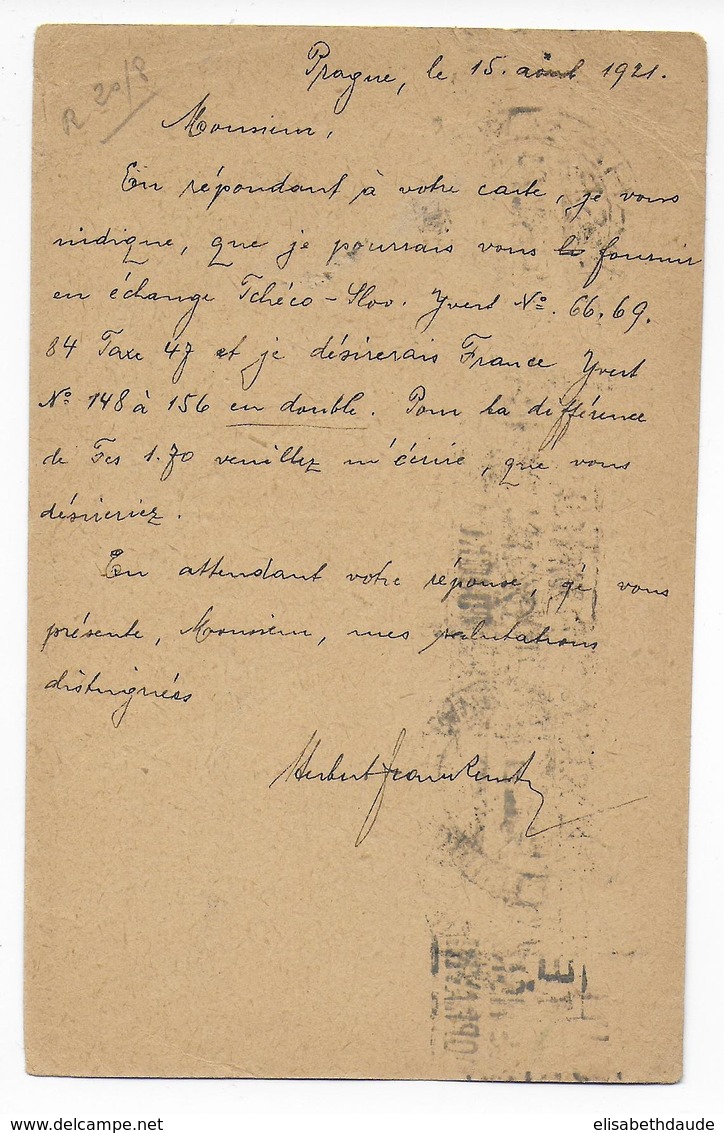 R 20/8
Prague, le 15. août 1921.
Monsieur,
En répondant à votre carte, je vous
indique, que je pourrais vous fournir
en échange Tchéco-Slov. Yvert No. 66, 69.
84 Taxe 47 et je désirerais France Yvert
No 148 à 156 en double. Pour la différence
de Fcs 1.70 veuillez m'écrire, que vous
désireriez.
En attendant votre réponse, je vous
présente, Monsieur, mes salutations
distinguées
Herbert
elisabethdaude